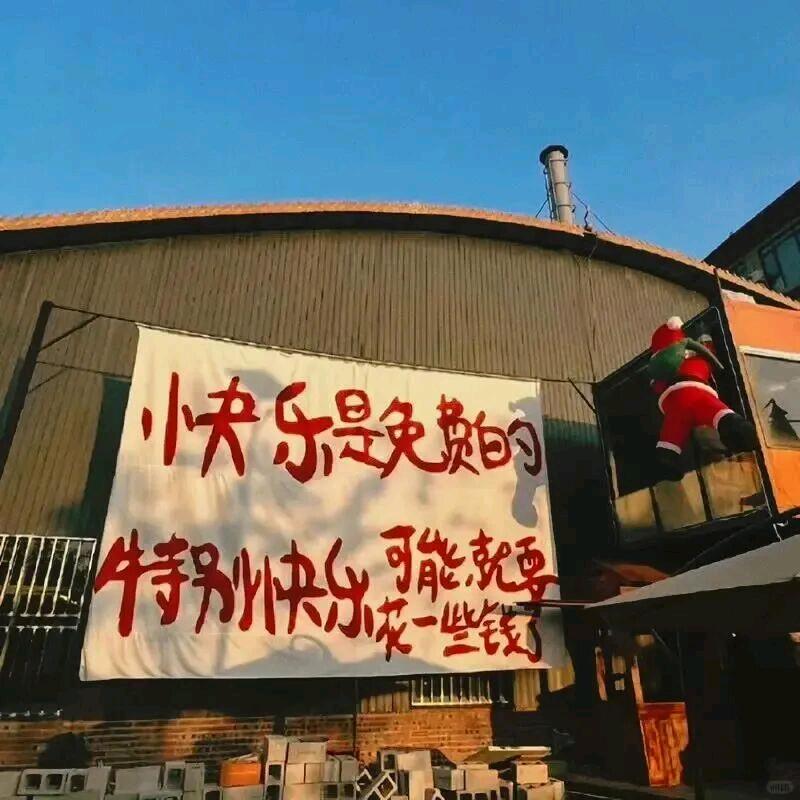 快乐是免费的
特别快乐 可能就要
花一些钱了